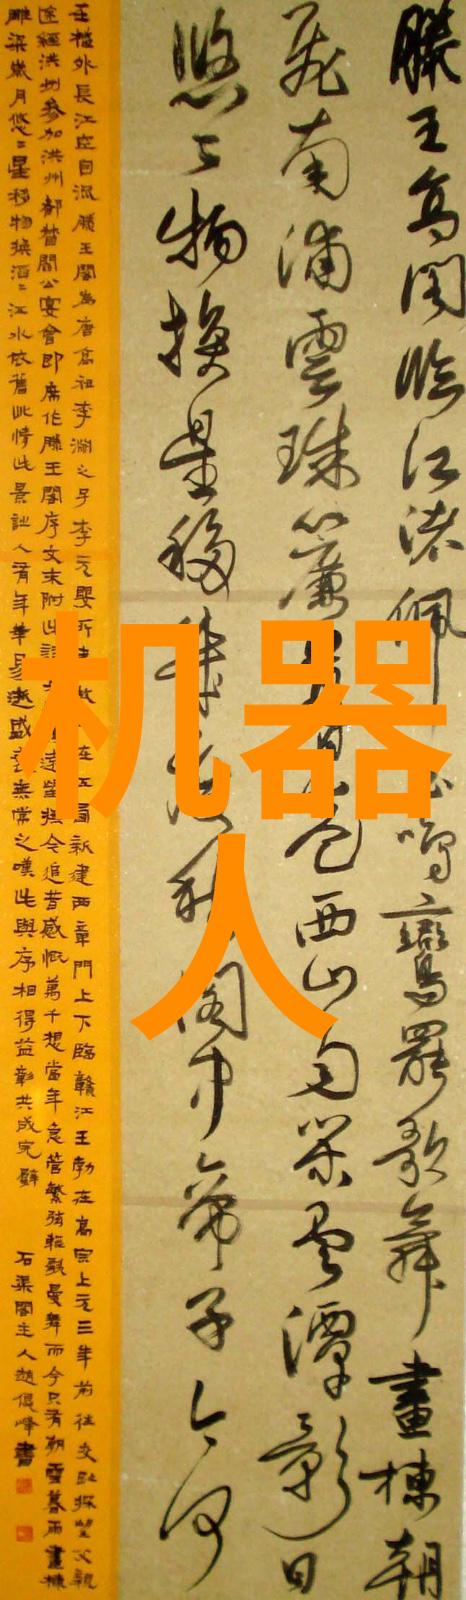 滕王高閣臨江渚佩玉鳴鸞罷歌舞畫棟朝
飛南浦雲珠簾暮捲西山雨閒雲潭影日
悠〻物換星移幾度秋閣中帝子今何
在檻外長江空自流滕王閣為唐高祖李淵之子李元嬰所建故址在江西新建西章門上下臨贛江王勃在高宗上元三年前往交趾探望父親
途經洪州參加洪州都督閻公宴會即席作滕王閣序文末附此詩遠望撫今追昔感慨萬千想當年急管繁弦輕歌曼舞而今只有朝雲暮雨畫棟
雕梁歲月悠〻星移物換滔〻江水依舊此情此景詎人有年華易逝盛筵無常之嘆此與序相得益彰共成完璧 石渠閣主人趙俊峰書
机器
人